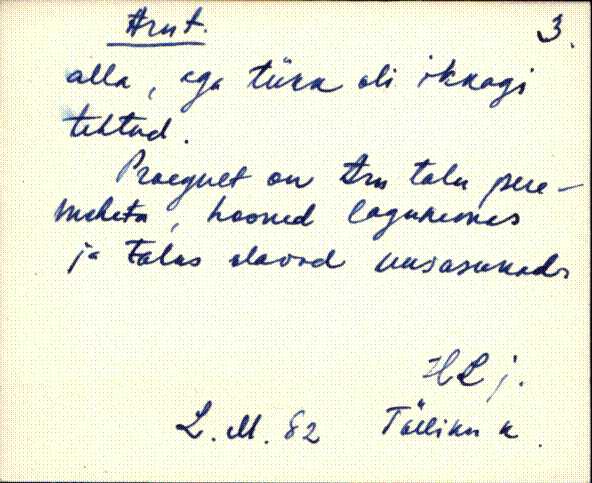 Aru t.
3.
alla, aga tükk oli ikkagi
tehtud.
Praegult on Aru talu pere-
meheta, hooned lagunemas
ja talus elavad uusasukad
HLj.
L. M. 82 Tälliku k.